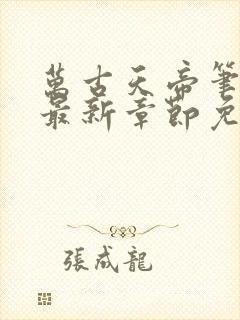 萬古天帝筆
最新章節免
張成龍